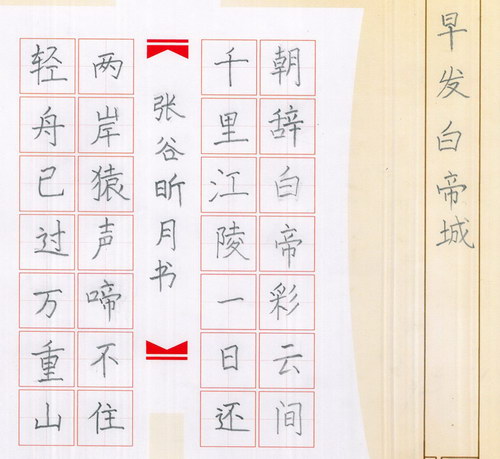 早发白帝城
朝辞白帝彩云间
千里江陵一日还
张谷昕月书
两岸猿声啼不住
轻舟已过万重山